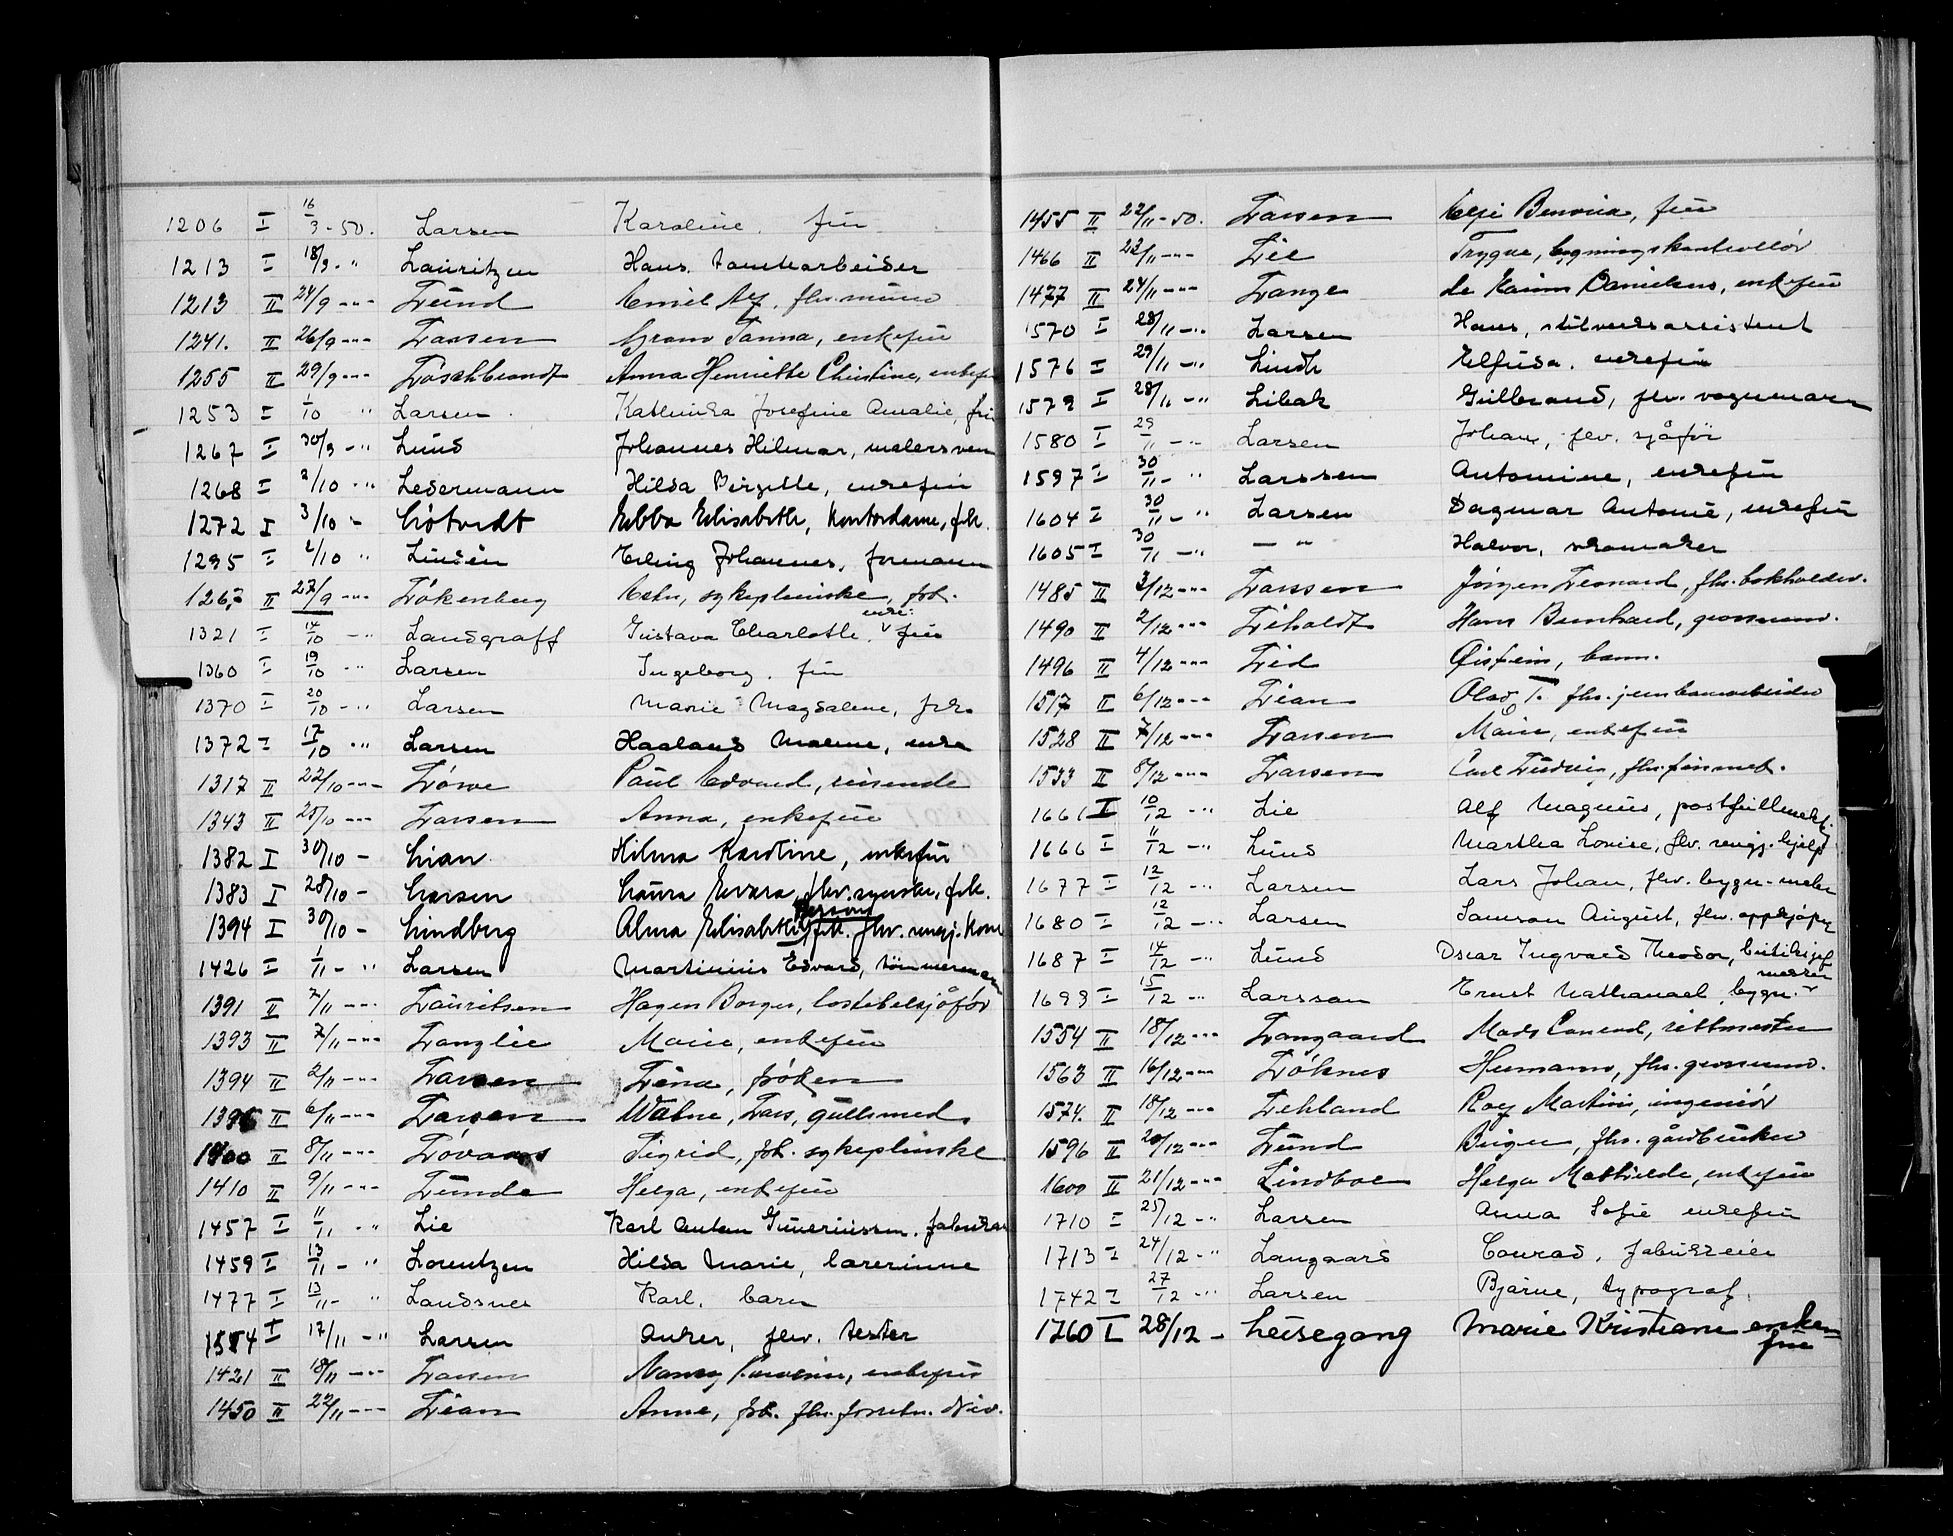 1206 I 16/9-50. Larsen Karoline, fru
1213 I 18/9 - " Lauritzen Hans,
1213 II 24/9 --- Lund Emil Alf, fhv.
1241. II 26/9 --- Larsen Gram Janna, enkefru
1255 II 29/9 --- Löschbrandt Anna Henriette Christine,
1253 I 1/10 " Larsen Josefine Amalie, fru
1267 I 30/9 - " Lund Johannes Hilmar, malersvenn
1268 I 2/10 - " Ledermann Hilda Birgitte, enkefru
1272 I 3/10 - Løtvedt Ebba Elisabeth, Kontordame, frk.
1295 I 2/10 " Lindén Erling Johannes, formann
II 27/9 --- Løkenberg sykepleierske, frk.
1321 I 14/10 - " Landgraff Gustava Charlotte, enke- fru
1360 I 19/10 - " Larsen Ingeborg, fru
1370 I 20/10 - " Larsen Marie Magdalene, frk.
1372 I 17/10 " Larsen Haaland Malene, enke
1317 II 22/10 --- Løwe Paul Edvard, reisende
1343 II 25/10 --- Larsen Anna, enkefru
1382 I 30/10 - Lian Hilma Karoline, enkefru
1383 I 28/10 - Larsen Laura fhv. syerske, frk.
1394 I 30/10 - Lindberg Alma Elisabeth frk. fhv. rengj. kone
1426 I 1/11 - " Larsen Martinius Edvard, tømmermann
1391 II 7/11 --- Lauritsen Hagen Borger, lastebilsjåfør
1393 II 7/11 --- Langlie Marie, enkefru
1394 II 2/11 --- Larsen Lina, frøken
II 6/11 --- Larsen Lars, gullsmed
1400 II 8/11 --- Løvaas Sigrid, frk. sykepleierske
1410 II 9/11 --- Lunde Helga, enkefru
1457 I 11/11 - " Lie Karl Anton
1459 I 13/11 - " Lorentzen Hilda Marie, lærerinne
1477 I 13/11 - " Landsnes Karl, barn
1514 I 17/11 - " Larsen Anker, fhv. tester
1421 II 18/11 --- Larsen Nanny enkefru
1450 II 22/11 --- Lian Anne, frk. fhv.
1455 II 22/11-50. Larsen fru
1466 II 23/11 --- Lie Trygve, bygningskontrollør
1477 II 24/11 --- Lange enkefru
1570 I 28/11 - " Larsen Hans, stilverksassistent
1576 I 29/11 - " Lindh Elfrida, enkefru
1579 I 28/11 - " Libak Gulbrand, fhv. vognmann
1580 I 29/11 - " Larsen Johan, fhv. sjåför
1597 I 30/11 - " Larssen Antonine, enkefru
1604 I 30/11 - " Larsen Dagmar Antonie, enkefru
1605 I 30/11 - " — " Halvor, skomaker
1485 II 3/12 --- Larssen Jörgen Leonard, fhv. bokholder.
1490 II 2/12 --- Liholdt Hans Bernhard, grosserer.
1496 II 4/12 --- Lid Øistein, barn.
1517 II 6/12 --- Lian Olav T. fhv. jernbanearbeider
1528 II 7/12 --- Larsen Marie, enkefru
1533 II 8/12 --- Larsen Carl Ludvig, fhv.
1661 I 10/12 - " Lie Alf Magnus, postfullmektig
1666 I 11/12 - " Lund Martha Louise, fhv. rengj. hjelp
1677 I 12/12 - " Larsen Lars Johan, fhv. bygn. maler
1680 I 12/12 - " Larsen Samson August, fhv. oppkjøper
1687 I 14/12 - " Lund Oscar Ingvald Theodor, butikksjef
1699 I 15/12 - " Larsson Ernst Nathanael, bygn. mester
1554 II 18/12 --- Langaard Mads Conrad, rittmester
1563 II 16/12 --- Løknes Hermann, fhv. grosserer.
1574. II 18/12 --- Lehland Roy Martin, ingeniör
1596 II 20/12 --- Lund Birger, fhv. gårdbruker
1600 II 21/12 --- Lindboe Helga Mathilde, enkefru
1710 I 25/12 - " Larsen Anna Sofie enkefru
1713 I 24/12 - " Langaard Conrad, fabrikkeier
1742 I 27/12 - " Larsen Bjarne, typograf.
1760 I 28/12 - Leisegang Marie Kristiane enke-
fru